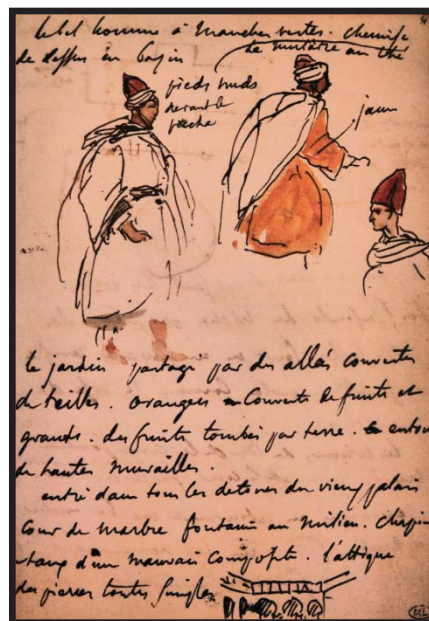 le bel homme à manches vertes. chemise
de dessus en basin
le mulâtre au thé
pieds nuds
devant le
jaun
le jardin partagé par des allés couvertes
de treilles. orangers couverts de fruits et
grands. des fruits tombés par terre. entou
de hautes murailles.
entré dans tous les detours du vieux palais
cour de marbre fontaine au milieu. chapi
teaux d'un mauvais composite. l'attique
des pierres toutes simples
ML